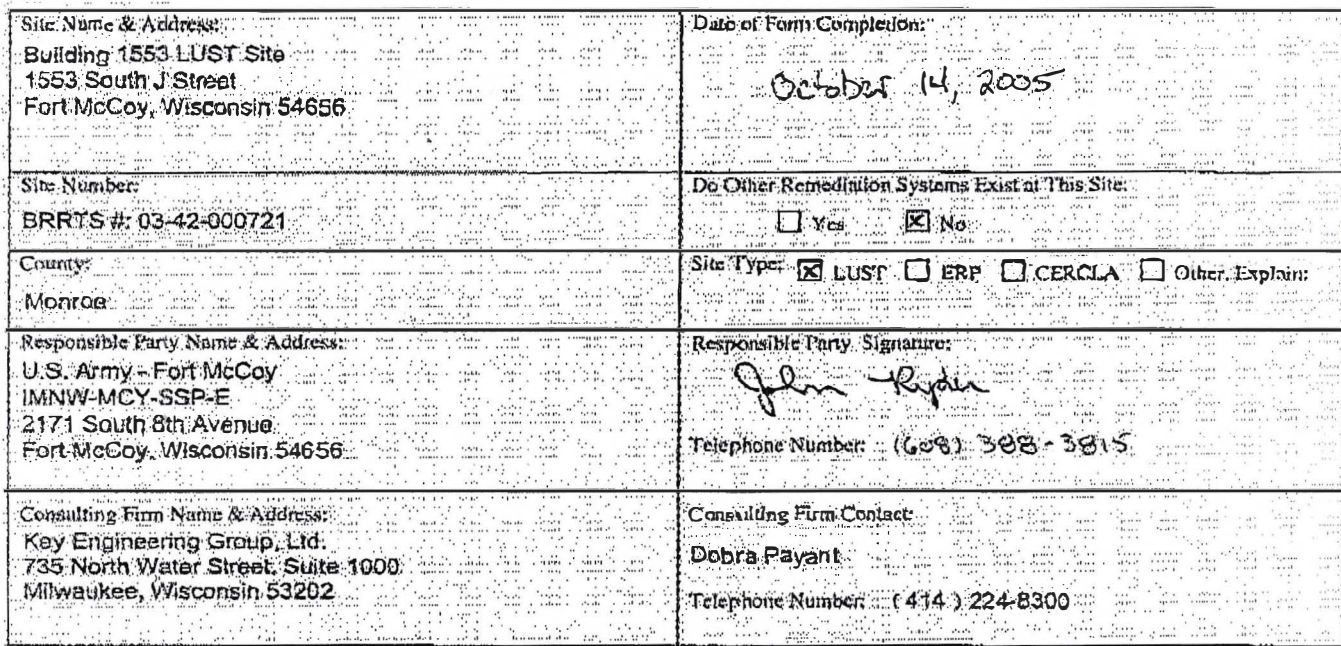 Site Name & Address:
Building 1553 LUST Site
1553 South J Street
Fort McCoy, Wisconsin 54656
Date of Form Completion:
October 14, 2005
Site Number:
BRRTS #: 03-42-000721
Do Other Remediation Systems Exist at This Site:
☐ Yes ☒ No
County:
Monroe
Site Type: ☒ LUST ☐ ERP ☐ CERCLA ☐ Other, Explain:
Responsible Party Name & Address:
U.S. Army - Fort McCoy
IMNW-MCY-SSP-E
2171 South 8th Avenue
Fort McCoy, Wisconsin 54656
Responsible Party Signature:
John Ryder
Telephone Number: (608) 388-3815
Consulting Firm Name & Address:
Key Engineering Group, Ltd.
735 North Water Street, Suite 1000
Milwaukee, Wisconsin 53202
Consulting Firm Contact:
Dobra Payant
Telephone Number: (414) 224-8300